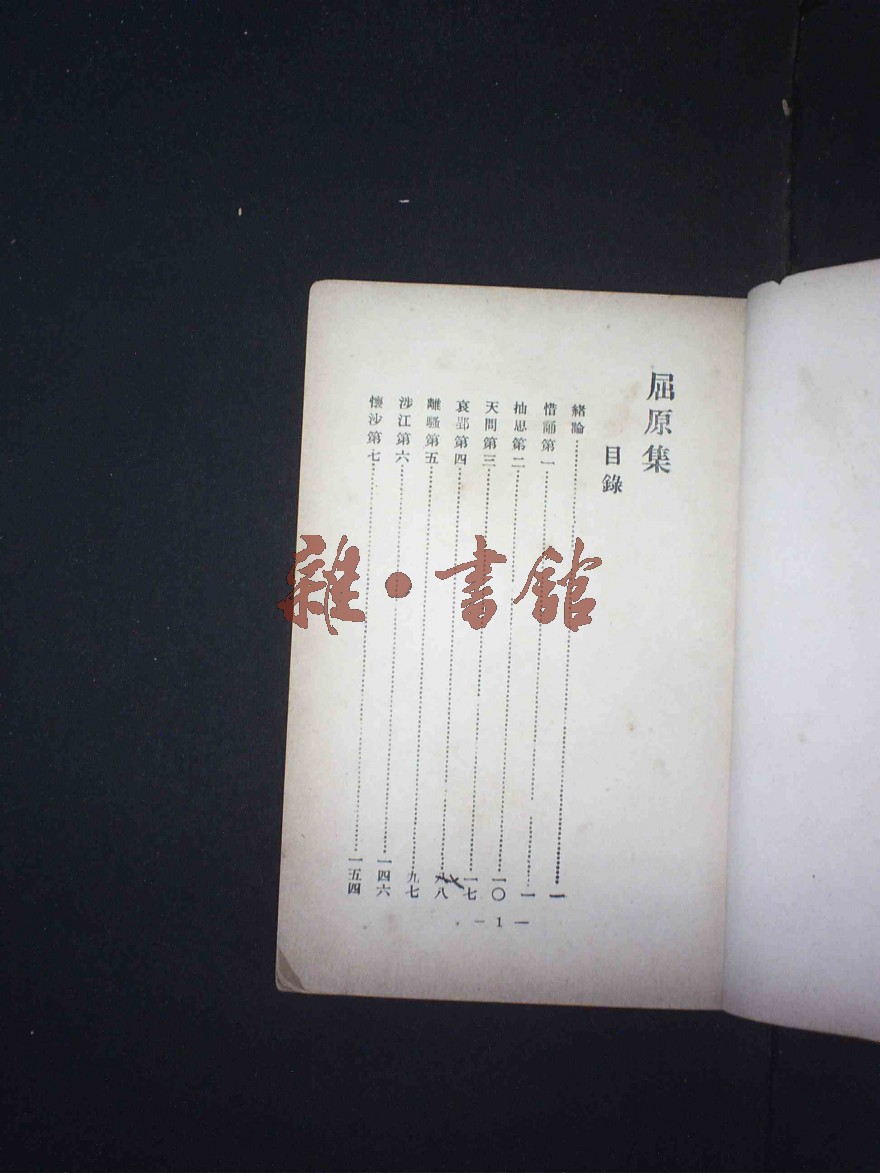 屈原集
目錄
緒論……一
惜誦第一……一
抽思第二……一〇
天問第三……一七
哀郢第四……八
離騷第五……九七
涉江第六……一四六
懷沙第七……一五四
— 1 —
雜·書館